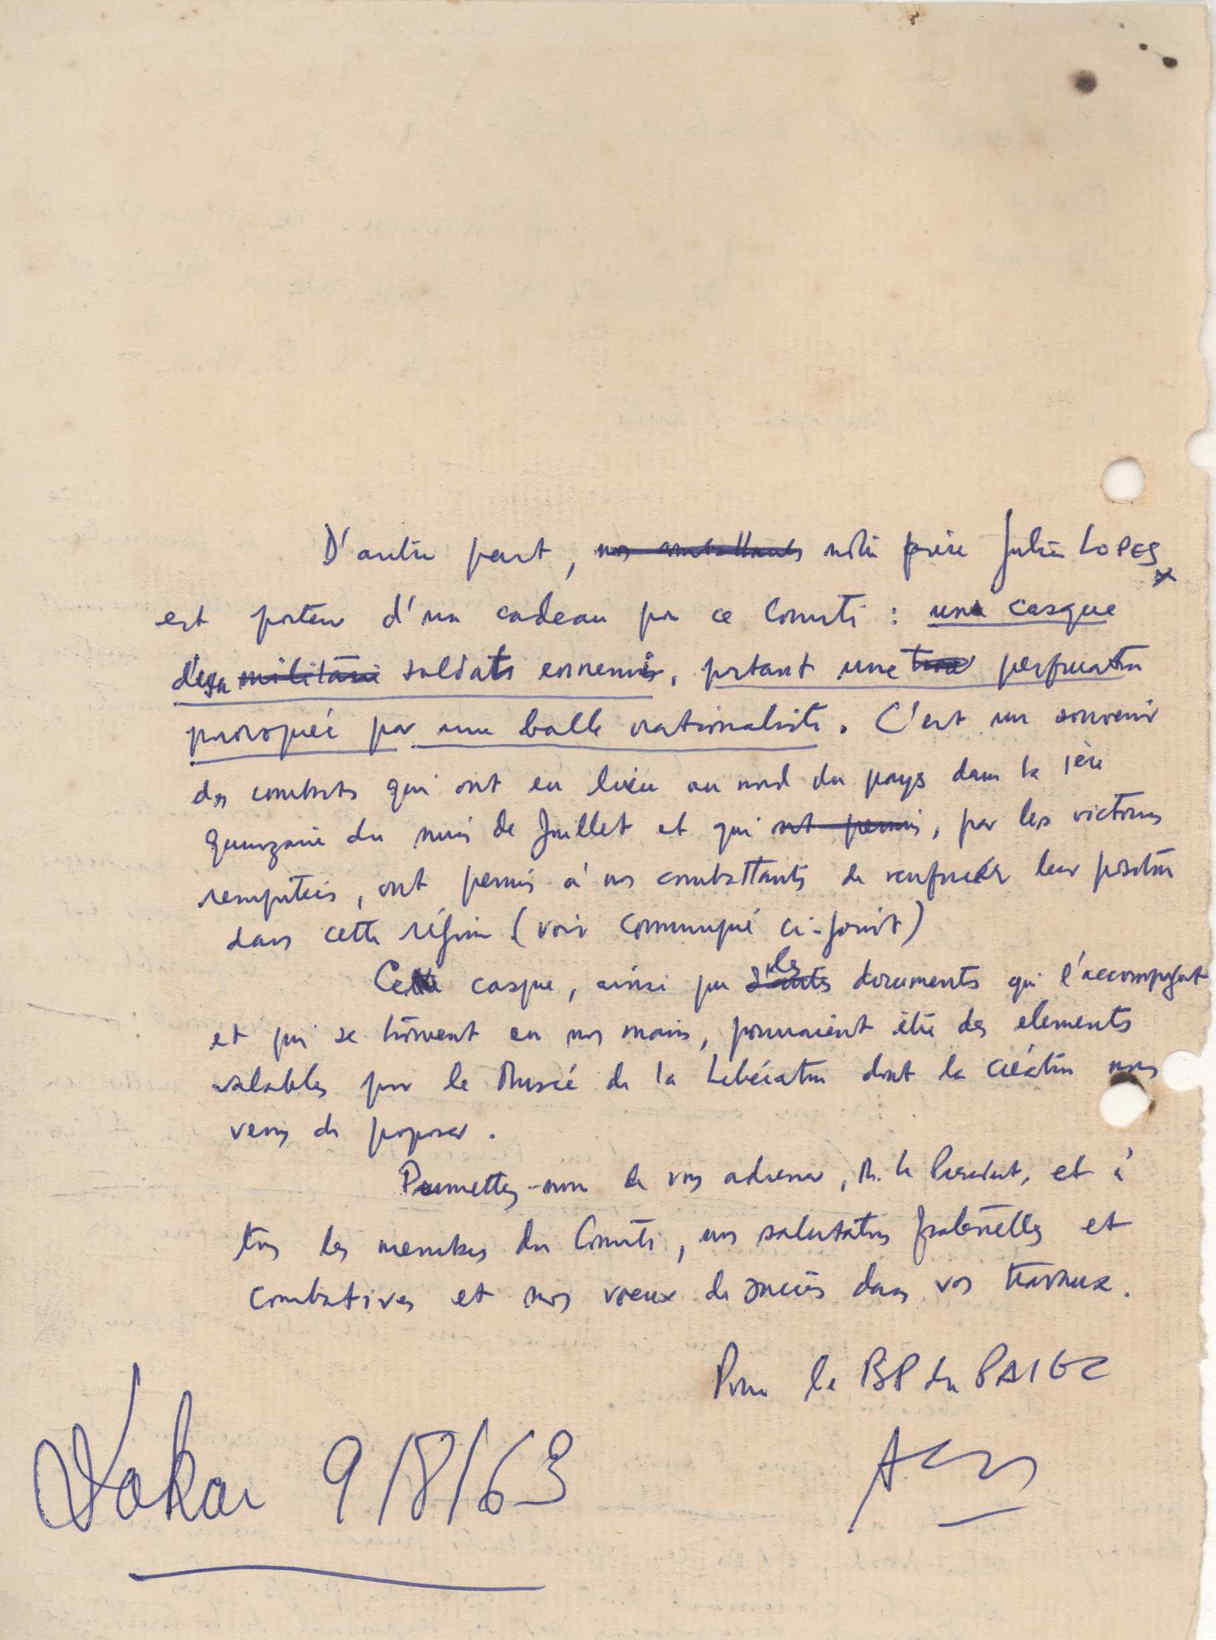 D'autre part, nos combattants notre frère Julien LOPES
est porteur d'un cadeau pour ce Comité : un casque
des militaire soldats ennemis, portant une perforation
provoquée par une balle nationaliste. C'est un souvenir
des combats qui ont eu lieu au nord du pays dans la 1ère
quinzaine du mois de Juillet et qui ont permis, par les victoires
remportées, ont permis à nos combattants de renforcer leur position
dans cette région (voir communiqué ci-joint)
Ce casque, ainsi que les documents qui l'accompagnent
et qui se trouvent en nos mains, pourraient être des elements
valables pour le Musée de la Libération dont la création nous
venons de proposer.
Permettez-nous de vous adresser, M. le President, et à
tous les membres du Comité, nos salutations fraternelles et
combatives et nos voeux de succès dans vos travaux.
Pour le BP du PAIGC
Dakar 9/8/63